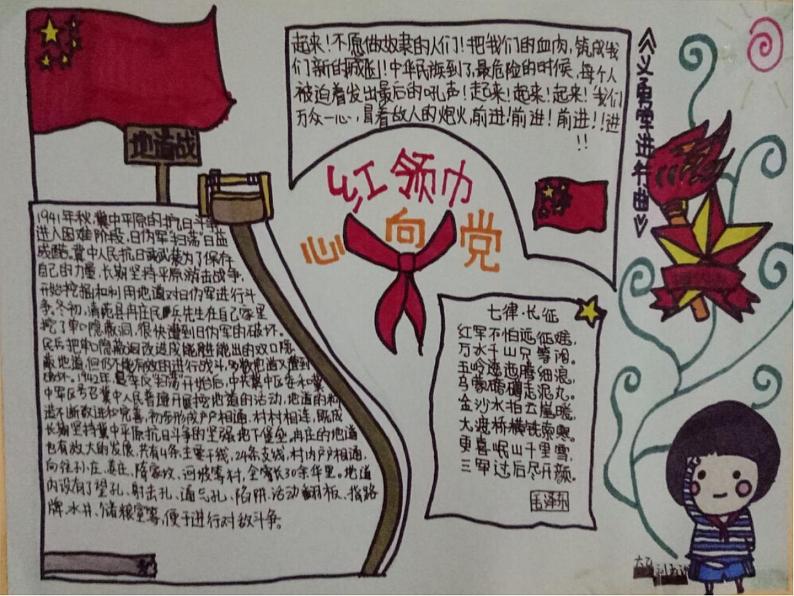 地道战
1941年秋,冀中平原的抗日斗争
进入困难阶段,日伪军"扫荡"日益
残酷。冀中人民抗日武装为了保存
自己的力量,长期坚持平原游击战争,
开始挖掘和利用地道对日伪军进行斗
争。冬初,清苑县冉庄民兵先生在自己家里
挖了单口隐蔽洞,很快遭到日伪军的破坏。
民兵把单口隐蔽洞改造成能进能出的双口隐
蔽地道,但仍不能有效的进行战斗,多数地道又遭到
破坏。1942年夏季反"扫荡"开始后,中共冀中区委和冀
中军区号召冀中人民普遍开展挖地道的活动,地道的构
造不断改进和完善,初步形成户户相通,村村相连,既成
长期坚持冀中平原抗日斗争的坚强地下堡垒。冉庄的地道
也有放大的发展,共有4条主要干线,24条支线,村内户户相通,
向往孙庄、姜庄、隋家坟、河坡等村,全家长30余华里。地道
内设有了望孔、射击孔、通气孔、陷阱、活动翻板、指路
牌、水井、储粮室等,便于进行对敌斗争。
起来!不愿做奴隶的人们!把我们的血肉,筑成我
们新的长城!中华民族到了,最危险的时候,每个人
被迫着发出最后的吼声!起来!起来!起来!我们
万众一心,冒着敌人的炮火,前进!前进!前进!!进
!!
《义勇军进行曲》
红领巾
心向党
七律·长征
红军不怕远征难,
万水千山只等闲。
五岭逶迤腾细浪,
乌蒙磅礴走泥丸。
金沙水拍云崖暖,
大渡桥横铁索寒。
更喜岷山千里雪,
三军过后尽开颜。
毛泽东